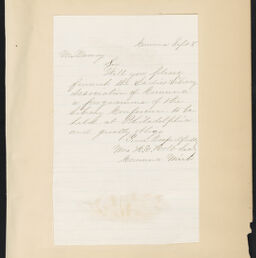 Romeo Sept 5
Mr. Dewey
Sir
Will you please
forward the Ladies Library
Association of Romeo
a programme of the
Library Conference to be
held at Philadelphia
and greatly oblige
Yours Respectfully
Mrs.
Mich.